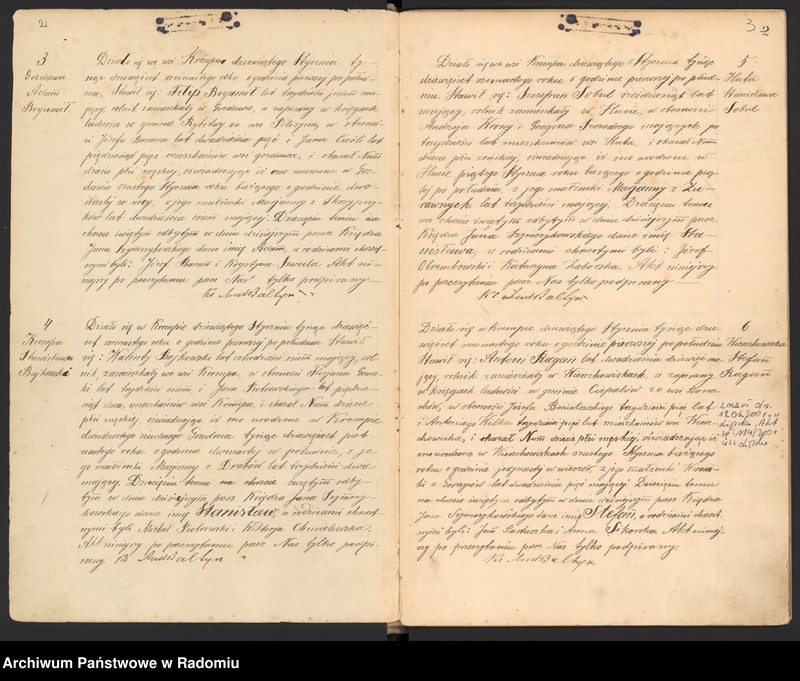 2
3
Gozdawa
Adam
Bogumił
Działo się we wsi Krempa dziewiątego Stycznia ty-
siąc dziewięćset szesnastego roku o godzinie pierwszej po połud-
niu. Stawił się: Filip Bogumił lat trzydzieści jeden ma-
jący, rolnik zamieszkały w Gozdawie, a zapisany w księgach
ludności w gminie ze wsi w obecnoś-
ci Józefa Barana lat dwadzieścia pięć i Jana Cieśli lat
pięćdziesiąt pięć mieszkańców wsi Gozdawa, i okazał Nam
dziecię płci męskiej, oświadczając iż ono urodzone w Goz-
dawie szóstego Stycznia roku bieżącego o godzinie dwu-
nastej w nocy, z jego małżonki Marjanny z
lat dwadzieścia osiem mającej. Dziecięciu temu na
chrzcie świętym odbytym w dniu dzisiejszym przez Księdza
Jana Szymczykowskiego dano imię Adam, a rodzicami chrzest-
nymi byli: Józef Baran i Krystyna Akt ni-
niejszy po przeczytaniu przez Nas tylko podpisany
4
Krempa
Stanisław
Bajkowski
Działo się w Krempie dziewiątego Stycznia tysiąc dziewięć-
set szesnastego roku o godzinie pierwszej po południu. Stawił
się: Walenty Bajkowski lat czterdzieści osiem mający, rol-
nik zamieszkały we wsi Krempa, w obecności
lat trzydzieści osiem i Jana Piotrowskiego lat pięćdzie-
siąt dwa, mieszkańców wsi Krempa, i okazał Nam dziecię
płci męskiej oświadczając iż ono urodzone w Krempie
Grudnia tysiąc dziewięćset pięt-
nastego roku o godzinie czwartej w południe, z je-
go małżonki Marjanny z Drabów lat trzydzieści dwa
mającej. Dziecięciu temu na chrzcie świętym odby-
tym w dniu dzisiejszym przez Księdza Jana Szymczy-
kowskiego dano imię Stanisław, a rodzicami chrzest-
nymi byli Michał Piotrowski i Wiktorja Chmielewska.
Akt niniejszy po przeczytaniu przez Nas tylko podpi-
sany
3 2
5
Huta
Stanisława
Sobul
Działo się we wsi Krempa dziewiątego Stycznia tysiąc
dziewięćset szesnastego roku o godzinie pierwszej po połud-
niu. Stawił się: Szczepan Sobul sześćdziesiąt lat
mający, rolnik zamieszkały w Hucie, w obecności
Andrzeja i Grzegorza mających po
trzydzieści lat mieszkańców wsi Huta, i okazał Nam
dziecię płci żeńskiej, oświadczając iż ono urodzone w
Hucie piątego Stycznia roku bieżącego o godzinie pią-
tej po południu z jego małżonki Marjanny z Żu-
rawnych lat trzydzieści mającej. Dziecięciu temu
na chrzcie świętym odbytym w dniu dzisiejszym przez
Księdza Jana Szymczykowskiego dano imię Sta-
nisława, a rodzicami chrzestnymi byli: Józef
i Katarzyna Zaborska. Akt niniejszy
po przeczytaniu przez Nas tylko podpisany
6
Wierzchowiska
Stefan
Ragan
Działo się w Krempie dziewiątego Stycznia tysiąc dzie-
więćset szesnastego roku o godzinie pierwszej po południu
Stawił się: Antoni Ragan lat dwadzieścia dziewięć ma-
jący, rolnik zamieszkały w Wierzchowiskach, a zapisany
w księgach ludności w gminie Ciepielów ze wsi
w obecności Józefa trzydzieści pięć lat
i Antoniego Wilka trzydzieści pięć lat mieszkańców wsi Wierz-
chowiska, i okazał Nam dziecię płci męskiej, oświadczając iż
ono urodzone w Wierzchowiskach szóstego Stycznia bieżącego
roku o godzinie jedynastej w wieczór, z jego małżonki
lat dwadzieścia pięć mającej. Dziecięciu temu
na chrzcie świętym odbytym w dniu dzisiejszym przez Księdza
Jana Szymczykowskiego dano imię Stefan, a rodzicami chrzest-
nymi byli: Jan i Anna Sikorska. Akt niniej-
szy po przeczytaniu przez Nas tylko podpisany.
zmarł dn.
Akt
Archiwum Państwowe w Radomiu